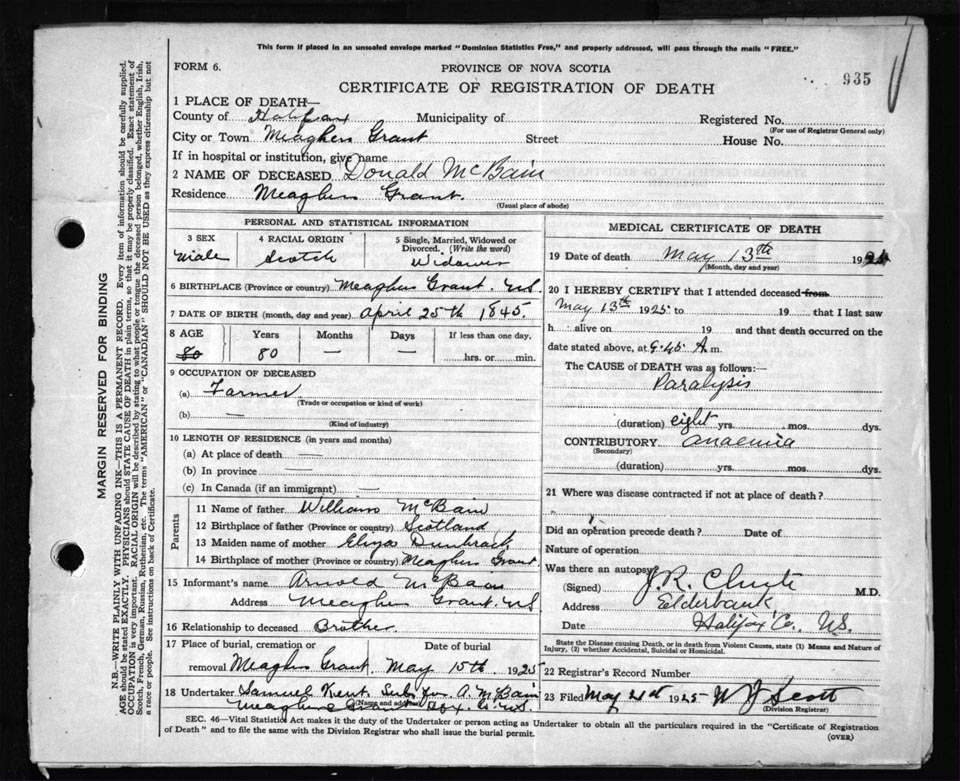 This form if placed in an unsealed envelope marked "Dominion Statistics Free," and properly addressed, will pass through the mails "FREE."
FORM 6.
PROVINCE OF NOVA SCOTIA
935
CERTIFICATE OF REGISTRATION OF DEATH
1 PLACE OF DEATH—
County of Halifax Municipality of Registered No.
(For use of Registrar General only)
City or Town Meaghers Grant Street House No.
If in hospital or institution, give name
2 NAME OF DECEASED Donald McBain
Residence Meaghers Grant.
(Usual place of abode)
PERSONAL AND STATISTICAL INFORMATION
3 SEX 4 RACIAL ORIGIN 5 Single, Married, Widowed or Divorced. (Write the word)
Male Scotch Widower
6 BIRTHPLACE (Province or country) Meaghers Grant. N.S.
7 DATE OF BIRTH (month, day and year) April 25th 1845.
8 AGE Years Months Days If less than one day,
80 80 — — hrs. or min.
9 OCCUPATION OF DECEASED
(a) Farmer
(Trade or occupation or kind of work)
(b) —
(Kind of industry)
10 LENGTH OF RESIDENCE (in years and months)
(a) At place of death —
(b) In province —
(c) In Canada (if an immigrant) —
Parents
11 Name of father William McBain
12 Birthplace of father (Province or country) Scotland
13 Maiden name of mother Eliza Dunbrack
14 Birthplace of mother (Province or country) Meaghers Grant.
15 Informant's name Arnold McBain
Address Meaghers Grant. N.S.
16 Relationship to deceased Brother.
17 Place of burial, cremation or Date of burial
removal Meaghers Grant. May 15th 1925
18 Undertaker Samuel Kent Sub. for A. McBain
(Name and address)
Meaghers Grant Hfx. Co. N.S.
MEDICAL CERTIFICATE OF DEATH
19 Date of death May 13th 192
(Month, day and year)
20 I HEREBY CERTIFY that I attended deceased from
May 13th 1925 to 19 that I last saw
h alive on 19 and that death occurred on
date stated above, at 9.45 A.m.
The CAUSE of DEATH was as follows:—
Paralysis
(duration) eight yrs. mos. dys.
CONTRIBUTORY anaemia
(Secondary)
(duration) yrs. mos. dys.
21 Where was disease contracted if not at place of death?
Did an operation precede death? Date of
Nature of operation
Was there an autopsy
(Signed) M.D.
Address Elderbank
Date Halifax Co., N.S.
State the Disease causing Death, or in death from Violent Causes, state (1) Means and Nature of Injury, (2) whether Accidental, Suicidal or Homicidal.
22 Registrar's Record Number
23 Filed May 21st 1925 W J Scott
(Division Registrar)
SEC. 46—Vital Statistics Act makes it the duty of the Undertaker or person acting as Undertaker to obtain all the particulars required in the "Certificate of Registration
of Death" and to file the same with the Division Registrar who shall issue the burial permit.
(OVER)
MARGIN RESERVED FOR BINDING
N.B.—WRITE PLAINLY WITH UNFADING INK—THIS IS A PERMANENT RECORD. Every item of information should be carefully supplied.
AGE should be stated EXACTLY. PHYSICIANS should STATE CAUSE OF DEATH in plain terms, so that it may be properly classified. Exact statement of
OCCUPATION is very important. RACIAL ORIGIN will be described by stating to what people or tongue the deceased person belonged, whether English, Irish,
Scotch, French, German, Russian, Ruthenian, etc. The terms "AMERICAN" or "CANADIAN" SHOULD NOT BE USED as they express citizenship but not
a race or people. See instructions on back of Certificate.